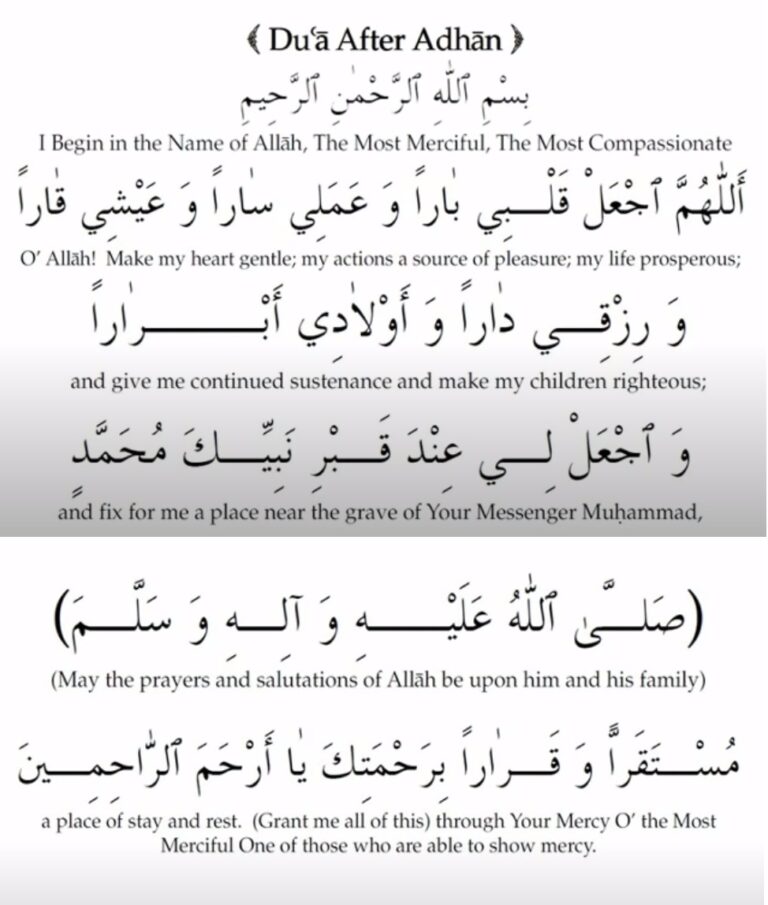 ﴾ Du‘ā After Adhān ﴿
بِسْمِ ٱللّٰهِ ٱلرَّحْمٰنِ ٱلرَّحِيمِ
I Begin in the Name of Allāh, The Most Merciful, The Most Compassionate
أَللّٰهُمَّ ٱجْعَلْ قَلْبِي بٰاراً وَ عَمَلِي سٰاراً وَ عَيْشِي قٰاراً
O’ Allāh!  Make my heart gentle; my actions a source of pleasure; my life prosperous;
وَ رِزْقِي دٰاراً وَ أَوْلاٰدِي أَبْرٰاراً
and give me continued sustenance and make my children righteous;
وَ ٱجْعَلْ لِي عِنْدَ قَبْرِ نَبِيِّكَ مُحَمَّدٍ
and fix for me a place near the grave of Your Messenger Muḥammad,
(صَلَّىٰ ٱللّٰهُ عَلَيْهِ وَ آلِهِ وَ سَلَّمَ)
(May the prayers and salutations of Allāh be upon him and his family)
مُسْتَقَرّاً وَ قَرٰاراً بِرَحْمَتِكَ يٰا أَرْحَمَ ٱلرّٰاحِمِينَ
a place of stay and rest.  (Grant me all of this) through Your Mercy O’ the Most
Merciful One of those who are able to show mercy.